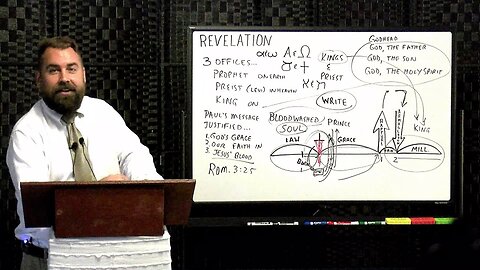 REVELATION
α/ω A & Ω
א & ת
3 OFFICES...
PROPHET ON EARTH
PREIST (LEVI) IN HEAVEN
KING ON
KINGS
&
PRIEST
WRITE
GODHEAD
GOD, THE FATHER
GOD, THE SON
GOD, THE HOLY SPIRIT
KING
PAUL'S MESSAGE
JUSTIFIED...
1. GOD'S GRACE
2 OUR FAITH IN
3. JESUS' BLOOD
ROM. 3:25
BLOODWASHED/ PRINCE
SOUL
LAW
GRACE
1
2
MILL.